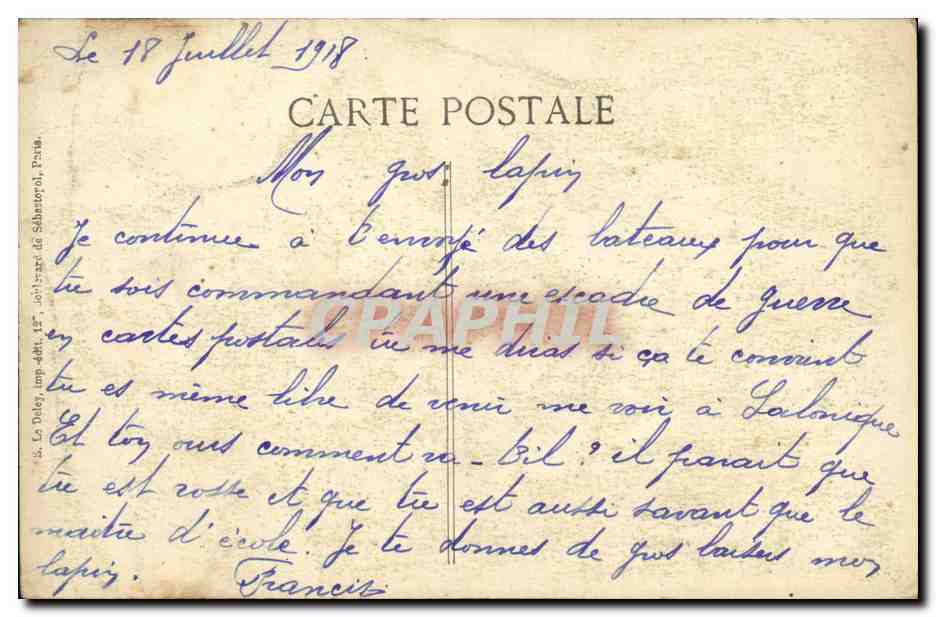 Le 18 Juillet 1918
CARTE POSTALE
Mon gros lapin
Je continue à t'envoyé des bateaux pour que
tu sois commandant une escadre de guerre
en cartes postales tu me diras si ça te convient
tu es même libre de venir me voir à Salonique
Et ton ours comment va-t'il? il parait que
tu est rosse et que tu est aussi savant que le
maitre d'école. Je te donnes de gros baisers mon
lapin. Francis
E. Le Deley, imp.-édit. 127, Boulevard de Sébastopol, Paris.
CPAPHIL